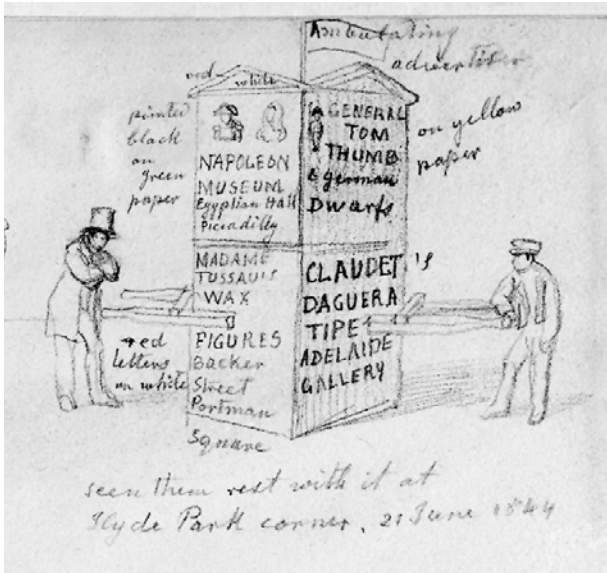 Ambulating
advertiser
red white
printed
black
on
green
paper
NAPOLEON
MUSEUM
Egyptian Hall
Piccadilly
GENERAL
TOM
THUMB
& german
Dwarfs
on yellow
paper
MADAME
TUSSAUIS
WAX
FIGURES
Backer
Street
Portman
Square
red
letters
on white
CLAUDET's
DAGUERA
TIPE
ADELAIDE
GALLERY
seen them rest with it at
Hyde Park corner. 21 June 1844